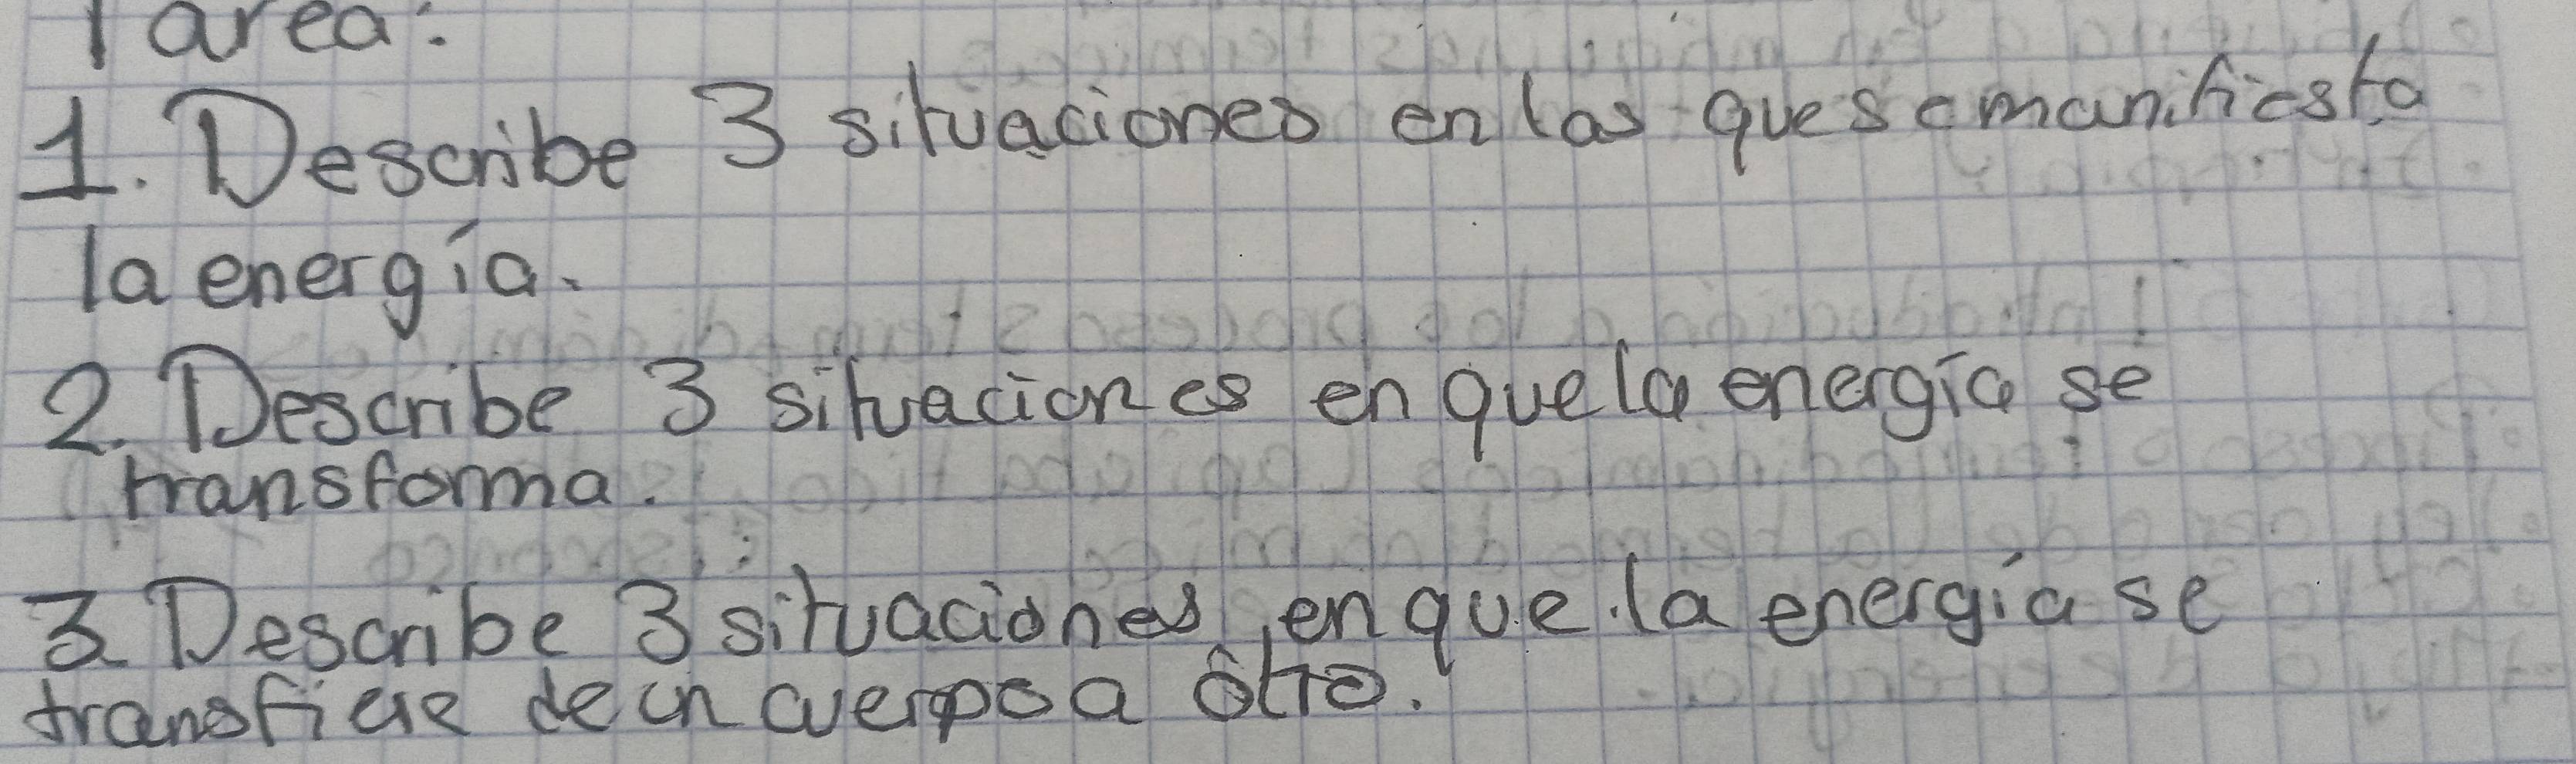 Tarea:
1. Describe 3 situaciones en las que se manifiesta
la energía.
2. Describe 3 situaciones en que la energía se
transforma.
3. Describe 3 situaciones en que la energía se
transfiere de un cuerpo a otro.